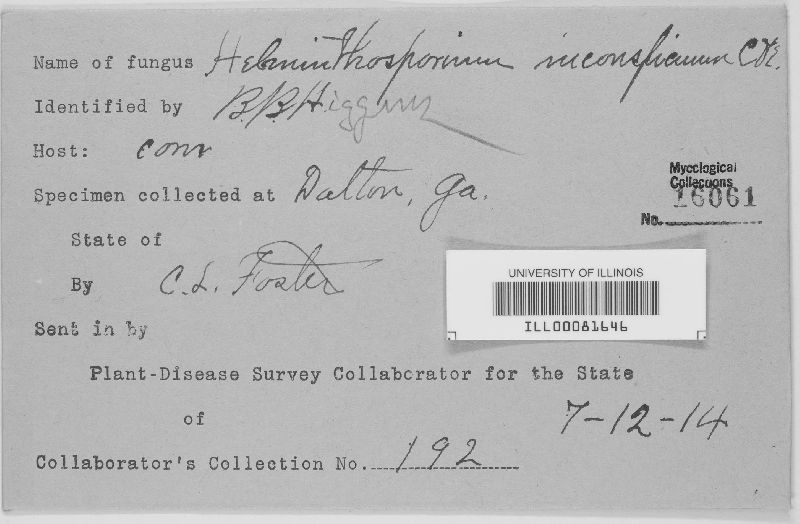 Name of fungus Helminthosporium inconspicuum C&E.
Identified by B.B. Higgins
Host: Corn
Specimen collected at Dalton, Ga.
Mycological
Collections
16061
No.
State of
By C. L. Foster
UNIVERSITY OF ILLINOIS
ILL00081646
Sent in by
Plant-Disease Survey Collaborator for the State
of
7-12-14
Collaborator's Collection No. 192